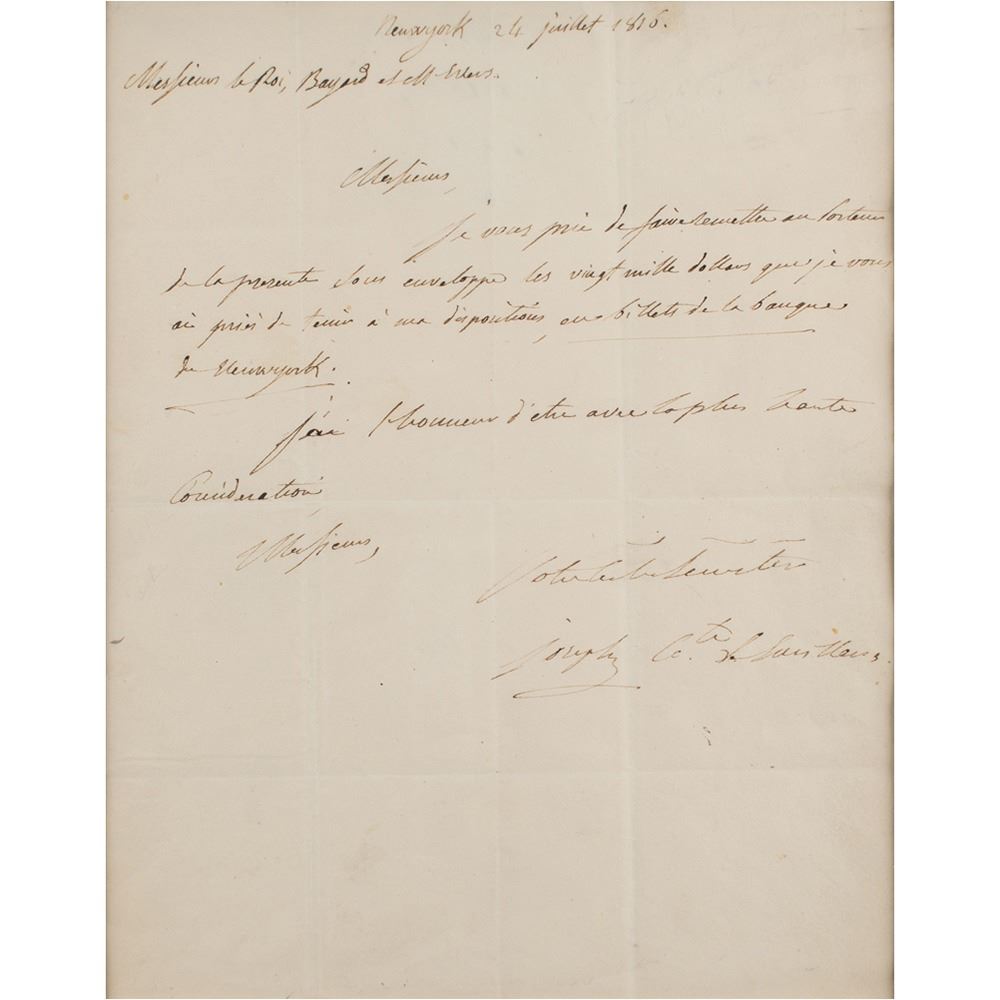 Newyork 24 juillet 1816.
Messieurs le Roi, Bayard et Mc Evers.
Messieurs,
je vous prie de faire remettre au porteur
de la presente sous enveloppe les vingt mille dollars que je vous
ai prié de tenir à ma disposition, en billets de la banque
de Newyork.
j'ai l'honneur d'etre avec la plus haute
Consideration
Messieurs,
votre
joseph Cte de Survilliers